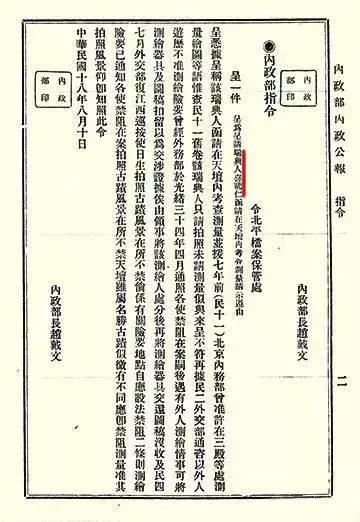 內政部內政公報　指令
二
●內政部指令
令北平檔案保管處
呈一件　呈爲呈請瑞典人喜龍仁函請在天壇內考查測量請示遵由
呈悉據呈稱該瑞典人函請在天壇內考查測量並援七年前（民十一）北京內務部曾准許在三殿等處測
量繪圖等語惟查民十一舊卷該瑞典人只請拍照未請測量似與來呈不符再據民二外交部通咨以外人
遊歷不准測繪險要曾經外務部於光緒三十四年四月通照各使禁阻在案嗣後遇有外人測繪情事可將
測繪器具及圖稿扣留以爲交涉證據俟由領事將該測繪人處分後再將測繪器具交還圖稿沒收及民四
七月外交部復江西巡按使日生拍照古蹟風景在所不禁倘係有關險要地點自應設法禁阻二條則測繪
險要已通知各使禁阻在案拍照古蹟風景在所不禁天壇雖屬名勝古蹟似微有不同應即禁阻測量准其
拍照風景仰即知照此令
內政部長趙戴文
中華民國十八年八月十日
內政部印
內政部長趙戴文
內政部印